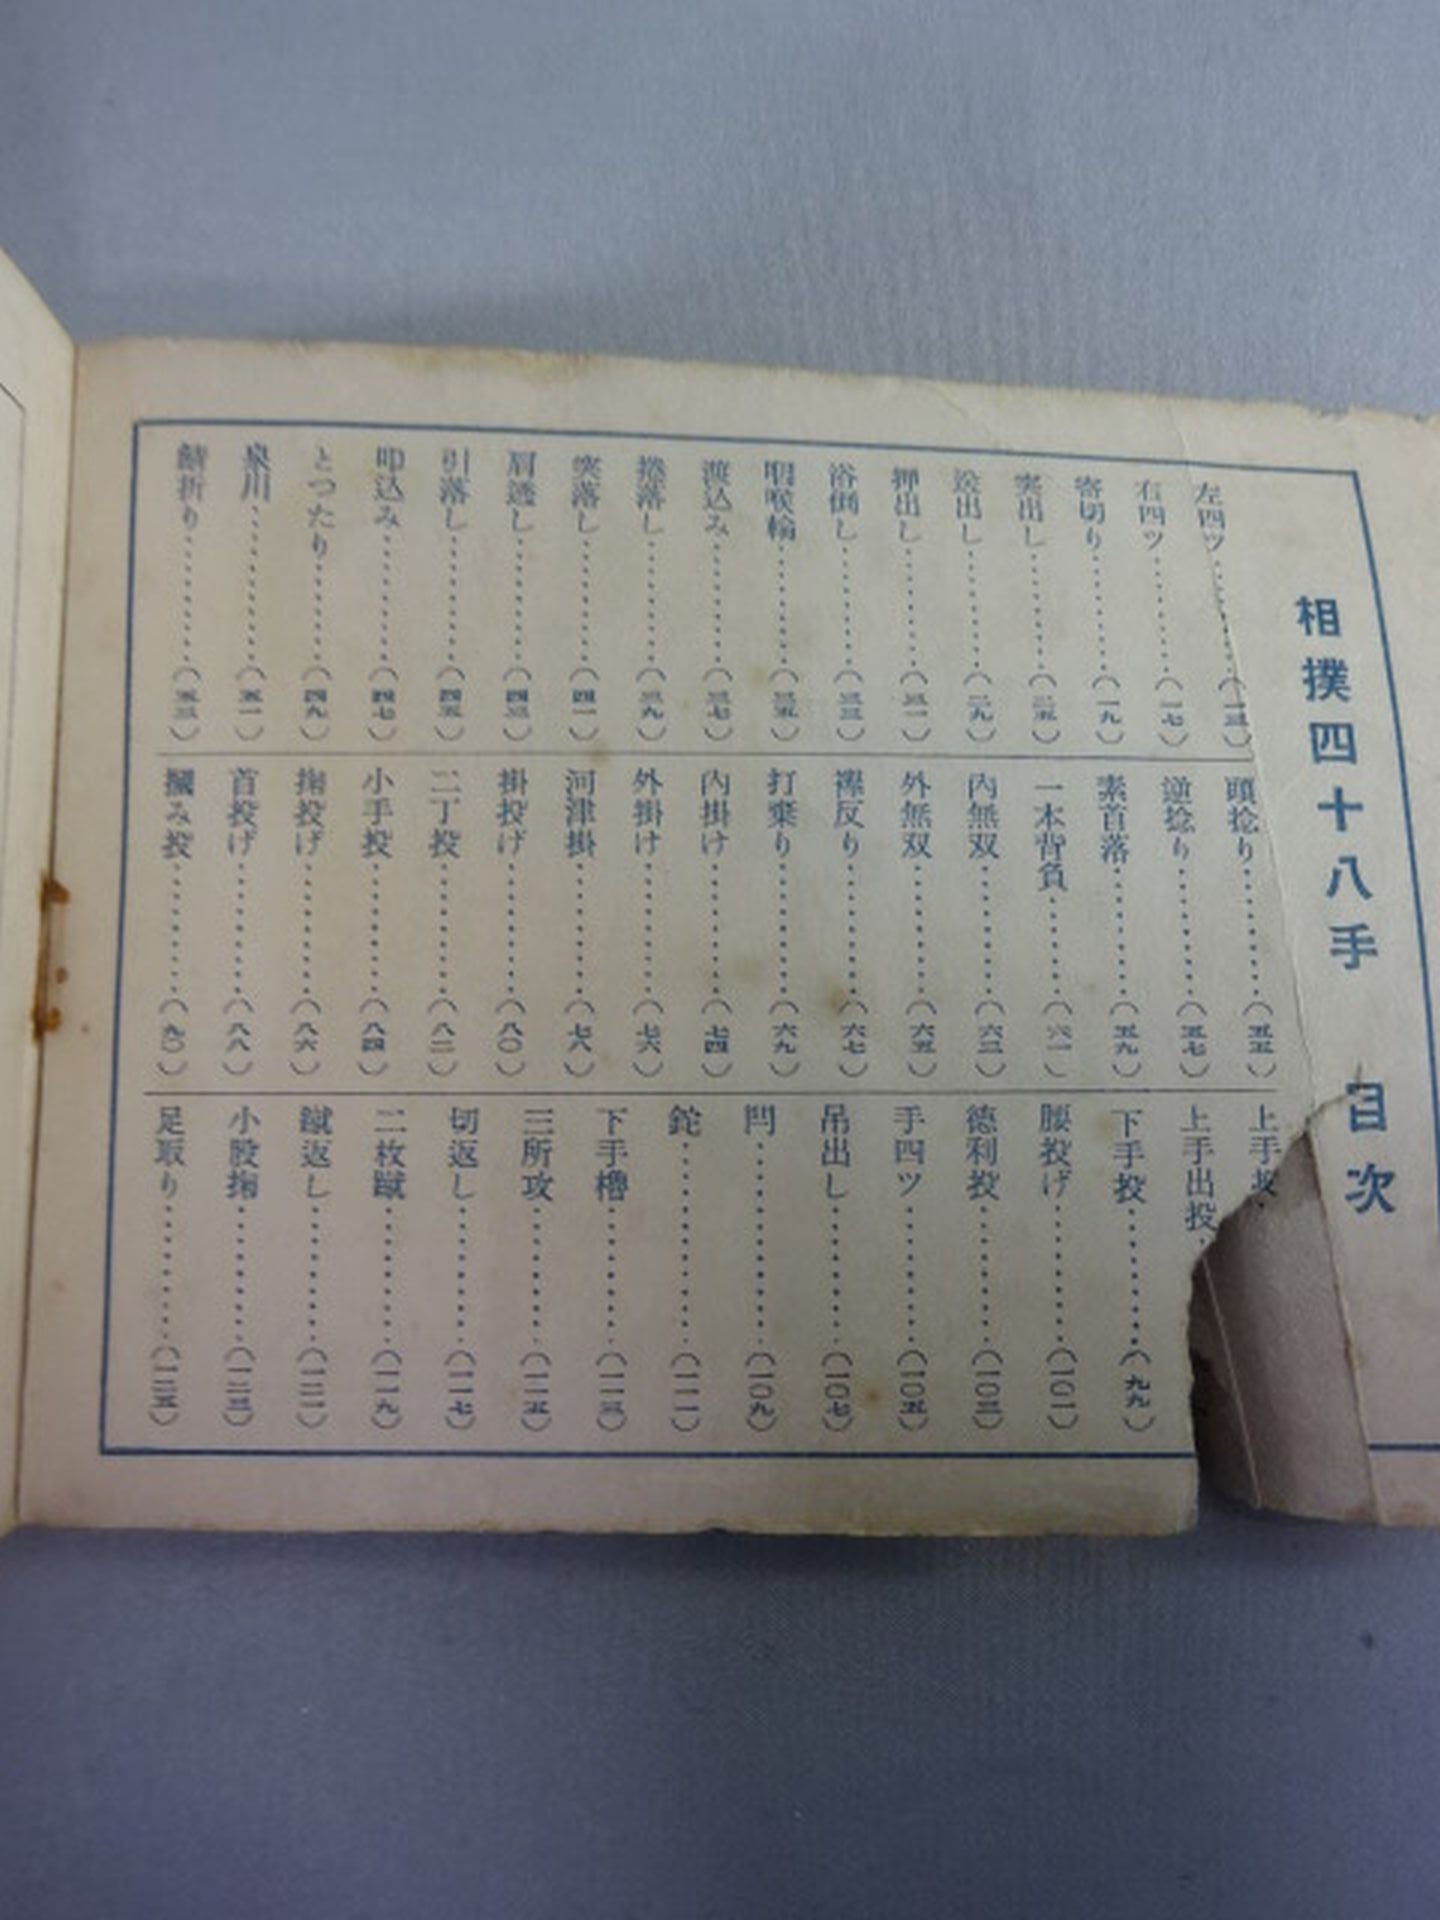 相撲四十八手 目次
左四ツ…………(一三)
右四ツ…………(一七)
寄切り…………(一九)
突出し…………(二五)
送出し…………(二九)
押出し…………(三一)
浴倒し…………(三三)
咽喉輪…………(三五)
渡込み…………(三七)
捲落し…………(三九)
突落し…………(四一)
肩透し…………(四三)
引落し…………(四五)
叩込み…………(四七)
とつたり…………(四九)
泉川…………(五一)
鯖折り…………(五三)
頭捻り…………(五五)
逆捻り…………(五七)
素首落…………(五九)
一本背負…………(六一)
内無双…………(六三)
外無双…………(六五)
襷反り…………(六七)
打棄り…………(六九)
内掛け…………(七四)
外掛け…………(七六)
河津掛…………(七八)
掛投げ…………(八〇)
二丁投…………(八二)
小手投…………(八四)
掬投げ…………(八六)
首投げ…………(八八)
摑み投…………(九〇)
上手投
上手出投
下手投…………(九九)
腰投げ…………(一〇一)
徳利投…………(一〇三)
手四ツ…………(一〇五)
吊出し…………(一〇七)
閂…………(一〇九)
鉈…………(一一一)
下手櫓…………(一一三)
三所攻…………(一一五)
切返し…………(一一七)
二枚蹴…………(一一九)
蹴返し…………(一二一)
小股掬…………(一二三)
足取り…………(一二五)